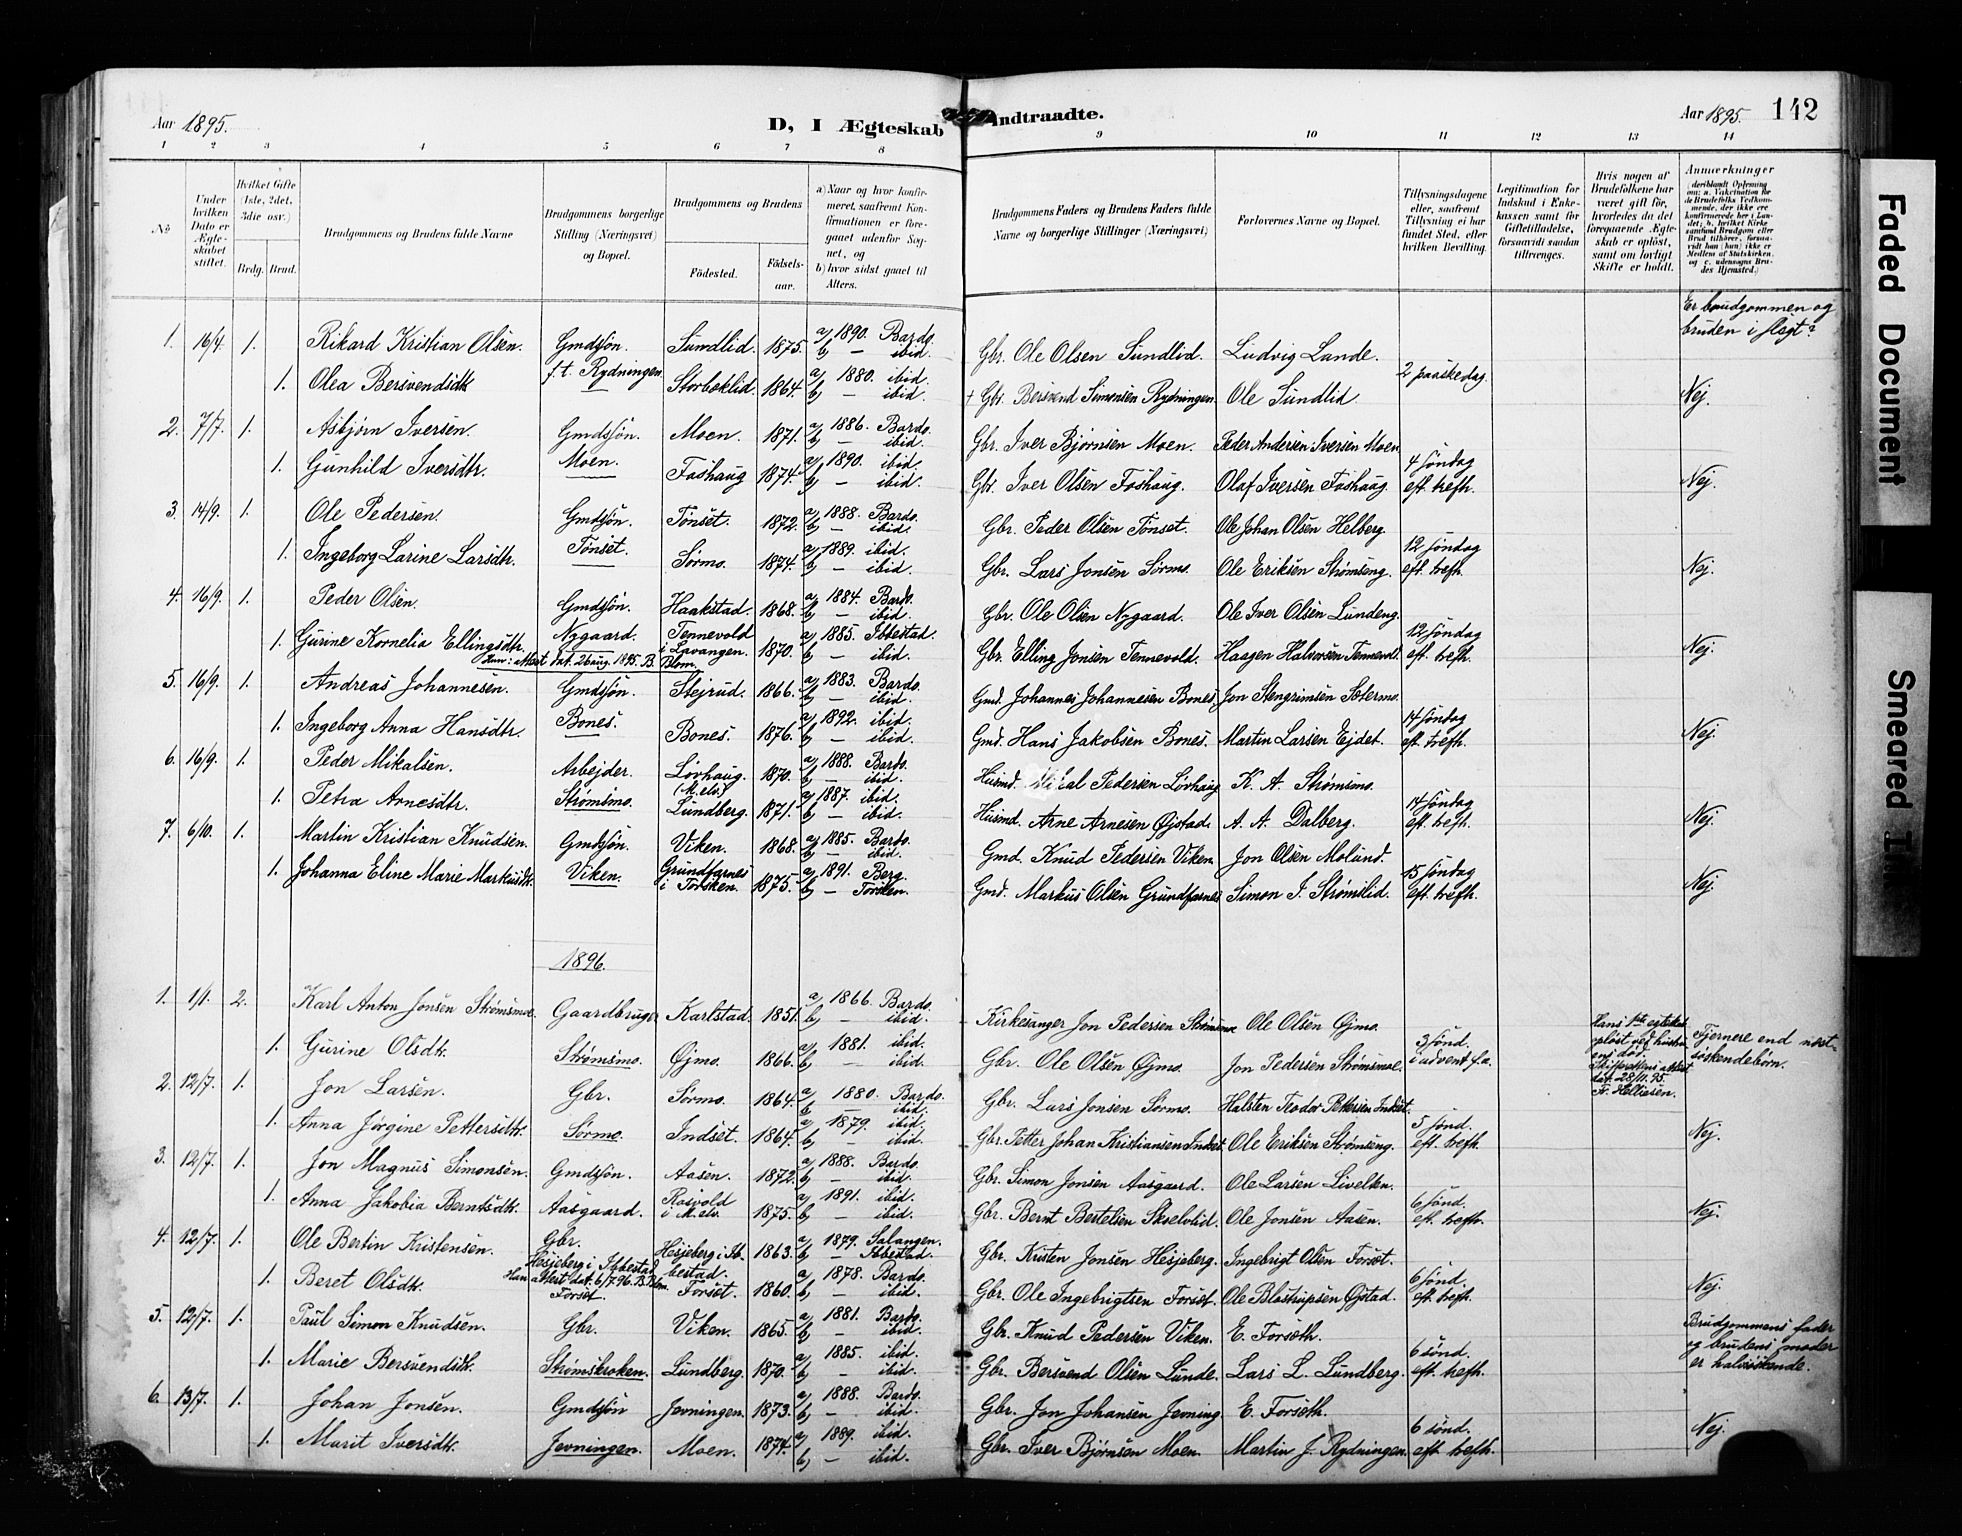 Aar 1895.
D, I Ægteskab Indtraadte.
Aar 1895. 142
1 2 3 4 5 6 7 8 9 10 11 12 13 14
No
Under hvilken Dato er Ægteskabet stiftet.
Hvilket Gifte (1ste, 2det, 3die osv.)
Brdg. Brud.
Brudgommens og Brudens fulde Navne
Brudgommens borgerlige Stilling (Næringsvei) og Bopæl.
Brudgommens og Brudens
Fødested. Fødselsaar.
a) Naar og hvor konfirmeret, saafremt Konfirmationen er foregaaet udenfor Sognet, og
b) hvor sidst gaaet til Alters.
Brudgommens Faders og Brudens Faders fulde Navne og borgerlige Stillinger (Næringsvei)
Forlovernes Navne og Bopæl.
Tillysningsdagene eller, saafremt Tillysning ei har fundet Sted, efter hvilken Bevilling.
Legitimation for Indskud i Enkekassen samt for Giftetilladelse, forsaavidt saadan tiltrænges.
Hvis nogen af Brudefolkene har været gift før, hvorledes da det foregaaende Ægteskab er opløst, samt om lovligt Skifte er holdt.
Anmerkninger
(deriblandt Oplysning om: a. Vakcination for de Brudefolks Vedkommende, der ikke ere konfirmerede her i Landet; b. hvilket Kirkesamfund Brudgom eller Brud tilhører, forsaavidt han (hun) ikke er Medlem af Statskirken, og c. udensogns Brudes Hjemsted.)
Er brudgommen og bruden i slægt?
1. 16/4. 1. Rikard Kristian Olsen. Gmdsøn. Sundlid. 1875. a) 1890. Bardo. b) — ibid. Gbr. Ole Olsen Sundlid. Ludvig Lande.
1. Olea Bersvendsdtr. f. t. Rydningen. Storbeklid. 1864. a) 1880. ibid. b) — ibid. + Gbr. Bersvend Simonsen Rydningen. Ole Sundlid. 2 paaskedag. Nej.
2. 7/7. 1. Asbjørn Iversen. Gmdsøn. Moen. 1871. a) 1886. Bardo. b) — ibid. Gbr. Iver Bjørnsen Moen. Peder Andersen Iversen Moen.
1. Gunhild Iversdtr. Moen. Foshaug 1874. a) 1890. ibid. b) — ibid. Gbr. Iver Olsen Foshaug. Olaf Iversen Foshaug. 4 søndag eft. trefh. Nej.
3. 14/9. 1. Ole Pedersen. Gmdsøn. Tønset. 1872. a) 1888. Bardo. b) — ibid. Gbr. Peder Olsen Tønset. Ole Johan Olsen Helberg
1. Ingeborg Larine Larsdtr. Tønset. Sørmo. 1874. a) 1889. ibid. b) — ibid. Gbr. Lars Jonsen Sørmo. Ole Eriksen Strømseng. 12 søndag eft. trefh. Nej.
4. 16/9. 1. Peder Olsen. Gmdsøn. Haakstad. 1868. a) 1884. Bardo. b) — ibid. Gbr. Ole Olsen Nygaard. Ole Iver Olsen Lundeng.
1. Gurine Kornelia Ellingsdtr. Nygaard. Tennevold i Lavangen. 1870. a) 1885. Ibbestad. b) — ibid. Gbr. Elling Jonsen Tennevold. Haagen Halvorsen Tennevold. 12 søndag eft. trefh. Nej.
Hun: attest dat. 26 aug. 1895. B. Blom.
5. 16/9. 1. Andreas Johannesen. Gmdsøn. Stejrud. 1866. a) 1883. Bardo. b) — ibid. Gmd. Johannes Johannesen Bones. Jon Stengrimsen Sætermo.
1. Ingeborg Anna Hansdtr. Bones. Bones. 1876. a) 1892. ibid. b) — ibid. Gmd. Hans Jakobsen Bones. Martin Larsen Ejdet. 14 søndag eft. trefh. Nej.
6. 16/9. 1. Peder Mikalsen. Arbejder. Løvhaug. (M. elv.) 1870. a) 1888. Bardo. b) — ibid. Husmd. Mikal Pedersen Løvhaug K. A. Strømsmo.
1. Petra Arnesdtr. Strømsmo. Lundberg. 1871. a) 1887. ibid. b) — ibid. Husmd. Arne Arnesen Øjstad. A. A. Dalberg. 14 søndag eft. trefh. Nej.
7. 6/10. 1. Martin Kristian Knudsen. Gmdsøn. Viken. 1868. a) 1885. Bardo. b) — ibid. Gmd. Knud Pedersen Viken. Jon Olsen Molund.
1. Johanna Eline Marie Markusdtr. Viken. Grundfarnes i Torsken. 1875. a) 1891. Berg. b) — Torsken. Gmd. Markus Olsen Grundfarnes Simon J. Strømslid. 15 søndag eft. trefh. Nej.
1896.
1. 1/1. 2. Karl Anton Jonsen Strømsmoe. Gaardbruger Karlstad. 1851. a) 1866. Bardo. b) — ibid. Kirkesanger Jon Pedersen Strømsmoe Ole Olsen Øjmo.
1. Gurine Olsdtr. Strømsmo. Øjmo. 1866. a) 1881. ibid. b) — ibid. Gbr. Ole Olsen Øjmo. Jon Pedersen Strømsmoe. 3 sønd. i advent f. a. Hans 1ste egteskab opløst ved hustruens død. Skifterettens attest dat. 28/11. 95. Fr. Helliesen. Fjernere end næstsøskendebørn.
2. 12/7. 1. Jon Larsen. Gbr. Sørmo. 1864. a) 1880. Bardo. b) — ibid. Gbr. Lars Jonsen Sørmo. Halsten Teodor Pettersen Indset.
1. Anna Jørgine Pettersdtr. Sørmo. Indset. 1864. a) 1879. ibid. b) — ibid. Gbr. Petter Johan Kristiansen Indset. Ole Eriksen Strømseng. 5 sønd. eft. trefh. Nej.
3. 12/7. 1. Jon Magnus Simonsen. Gmdsøn. Aasen. 1872. a) 1888. Bardo. b) — ibid. Gbr. Simon Jonsen Aasgaard. Ole Larsen Livelten.
1. Anna Jakobia Berntsdtr. Aasgaard. Rosvold i M. elv. 1875. a) 1891. ibid. b) — ibid. Gbr. Bernt Bertelsen Skoelvlid. Ole Jonsen Aasen. 6 sønd. eft. trefh. Nej.
4. 12/7. 1. Ole Bertin Kristensen. Gbr. Hesjeberg i Ibbestad. Hesjeberg i Ibbestad. 1863. a) 1879. Salangen. b) — Ibbestad. Gbr. Kristen Jonsen Hesjeberg. Ingebrigt Olsen Forset.
1. Beret Olsdtr. Han attest dat. 6/7 96. B. Blom. Forset. Forset. 1860. a) 1878. Bardo. b) — ibid. Gbr. Ole Ingebrigtsen Forset. Ole Blostrupsen Øjstad. 6 sønd. eft. trefh. Nej.
5. 12/7. 1. Paul Simon Knudsen. Gbr. Viken. 1865. a) 1881. Bardo. b) — ibid. Gbr. Knud Pedersen Viken. E. Forseth.
1. Marie Bersvendsdtr. Strømskroken. Lundberg. 1870. a) 1885. ibid. b) — ibid. Gbr. Bersvend Olsen Lunde. Lars L. Lundberg. 6 sønd. eft. trefh. Brudgommens fader og brudens moder er halvsøskende.
6. 13/7. 1. Johan Jonsen. Gmdsøn Jevningen. 1873. a) 1888. Bardo. b) — ibid. Gbr. Jon Johansen Jevning. E. Forseth.
1. Marit Iversdtr. Jevningen. Moen. 1874. a) 1889. ibid. b) — ibid. Gbr. Iver Bjørnsen Moen. Martin J. Rydningen. 6 sønd. eft. trefh. Nej.
Faded Document
Smeared Ink